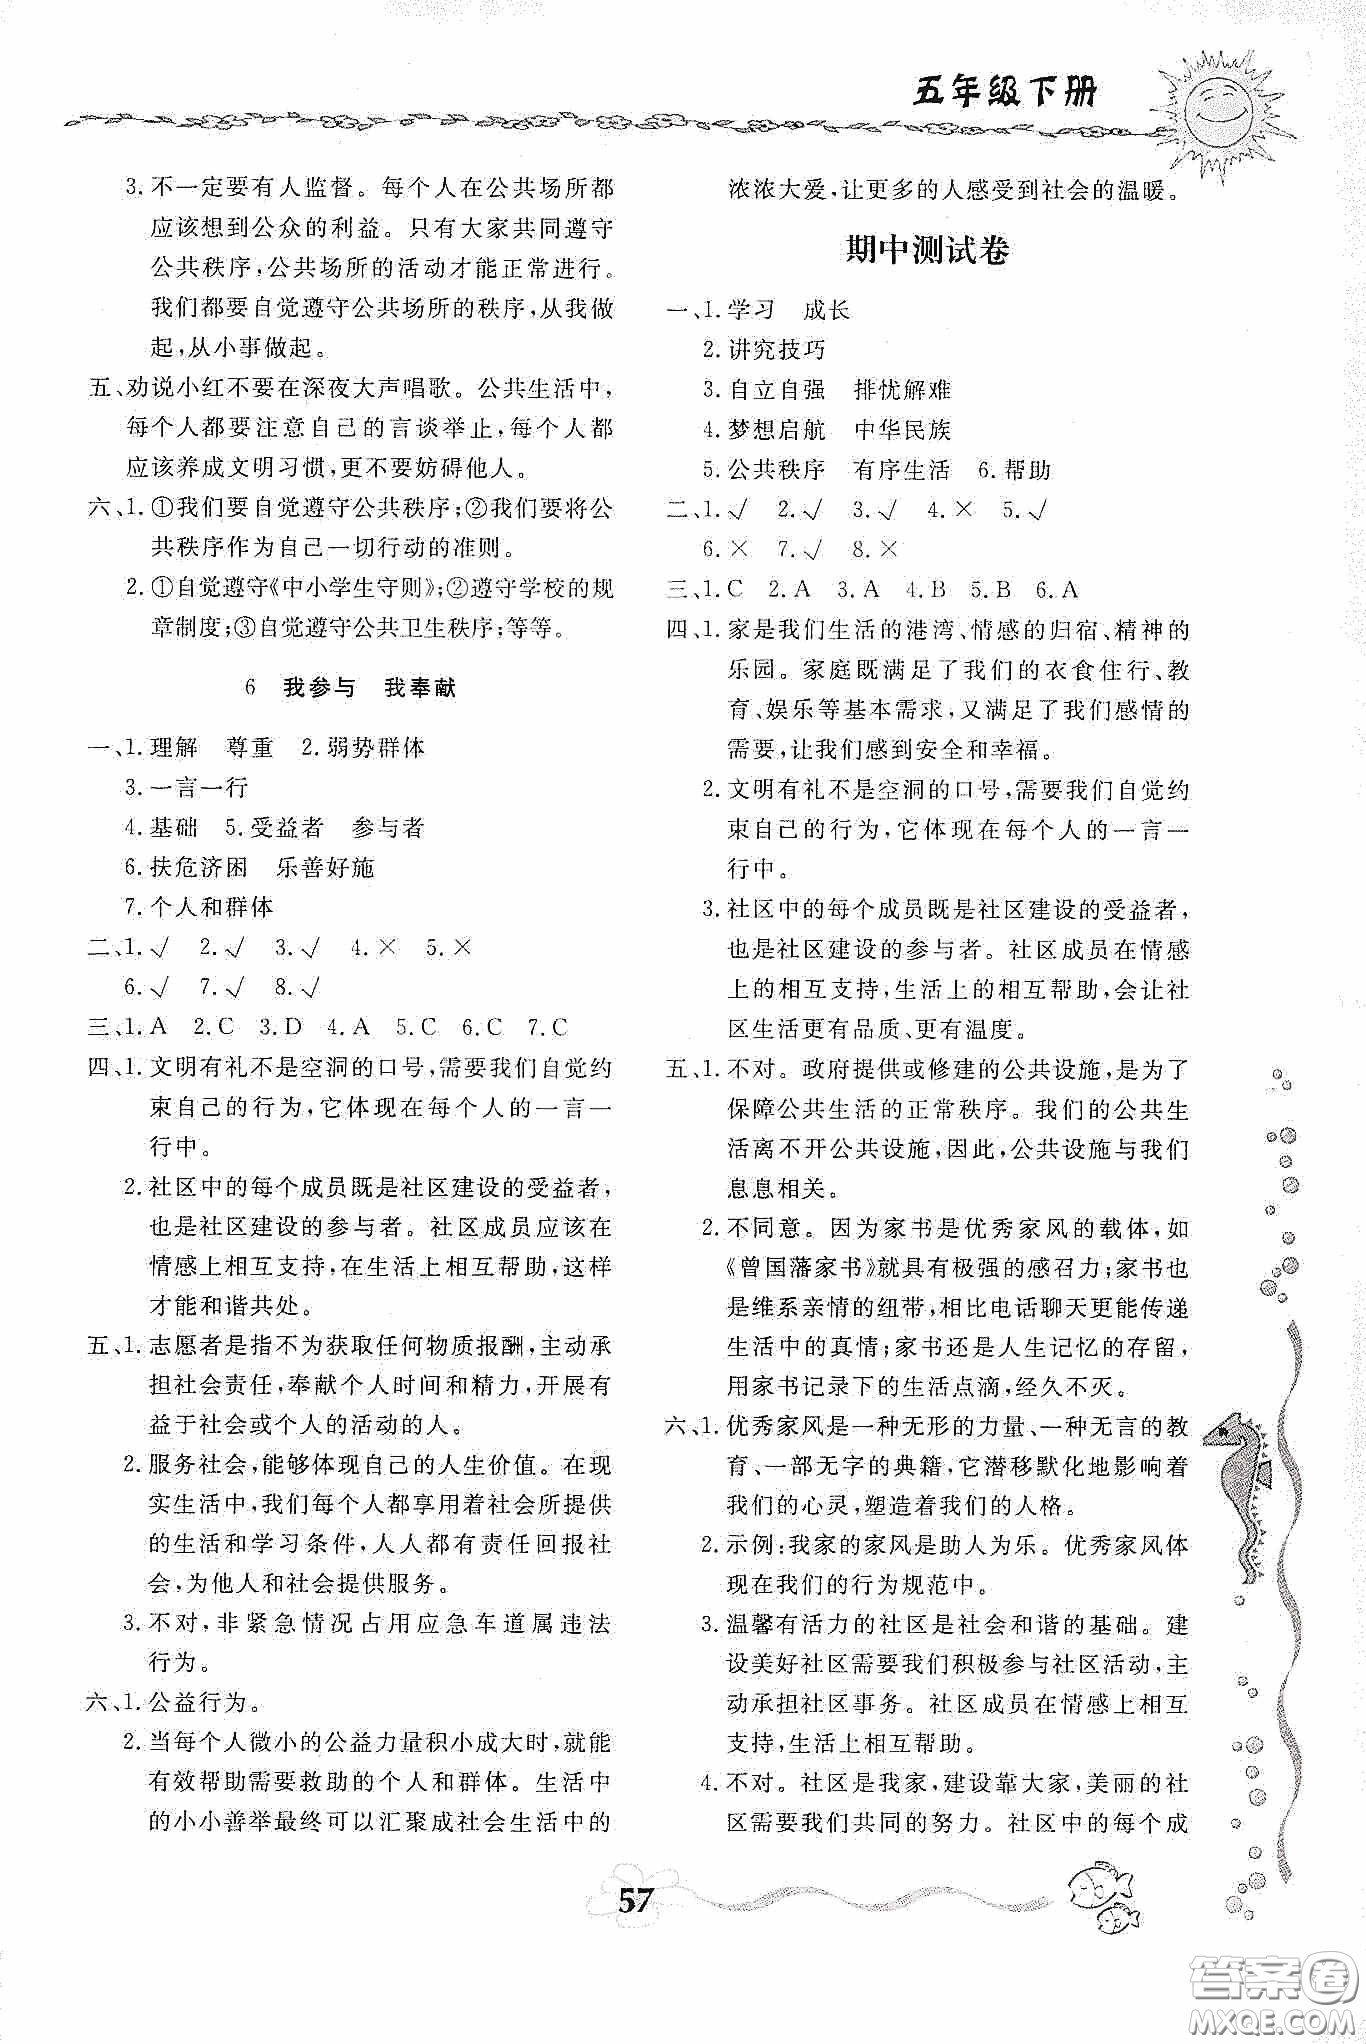 五年级下册
3. 不一定要有人监督。每个人在公共场所都
应该想到公众的利益。只有大家共同遵守
公共秩序,公共场所的活动才能正常进行。
我们都要自觉遵守公共场所的秩序,从我做
起,从小事做起。
五、劝说小红不要在深夜大声唱歌。公共生活中,
每个人都要注意自己的言谈举止,每个人都
应该养成文明习惯,更不要妨碍他人。
六、1. ①我们要自觉遵守公共秩序;②我们要将公
共秩序作为自己一切行动的准则。
2. ①自觉遵守《中小学生守则》;②遵守学校的规
章制度;③自觉遵守公共卫生秩序;等等。
6 我参与 我奉献
一、1. 理解 尊重 2. 弱势群体
3. 一言一行
4. 基础 5. 受益者 参与者
6. 扶危济困 乐善好施
7. 个人和群体
二、1. √ 2. √ 3. √ 4. × 5. ×
6. √ 7. √ 8. √
三、1. A 2. C 3. D 4. A 5. C 6. C 7. C
四、1. 文明有礼不是空洞的口号,需要我们自觉约
束自己的行为,它体现在每个人的一言一
行中。
2. 社区中的每个成员既是社区建设的受益者,
也是社区建设的参与者。社区成员应该在
情感上相互支持,在生活上相互帮助,这样
才能和谐共处。
五、1. 志愿者是指不为获取任何物质报酬,主动承
担社会责任,奉献个人时间和精力,开展有
益于社会或个人的活动的人。
2. 服务社会,能够体现自己的人生价值。在现
实生活中,我们每个人都享用着社会所提供
的生活和学习条件,人人都有责任回报社
会,为他人和社会提供服务。
3. 不对,非紧急情况占用应急车道属违法
行为。
六、1. 公益行为。
2. 当每个人微小的公益力量积小成大时,就能
有效帮助需要救助的个人和群体。生活中
的小小善举最终可以汇聚成社会生活中的
浓浓大爱,让更多的人感受到社会的温暖。
期中测试卷
一、1. 学习 成长
2. 讲究技巧
3. 自立自强 排忧解难
4. 梦想启航 中华民族
5. 公共秩序 有序生活 6. 帮助
二、1. √ 2. √ 3. √ 4. × 5. √
6. × 7. √ 8. ×
三、1. C 2. A 3. A 4. B 5. B 6. A
四、1. 家是我们生活的港湾、情感的归宿、精神的
乐园。家庭既满足了我们的衣食住行、教
育、娱乐等基本需求,又满足了我们感情的
需要,让我们感到安全和幸福。
2. 文明有礼不是空洞的口号,需要我们自觉约
束自己的行为,它体现在每个人的一言一
行中。
3. 社区中的每个成员既是社区建设的受益者,
也是社区建设的参与者。社区成员在情感
上的相互支持,生活上的相互帮助,会让社
区生活更有品质、更有温度。
五、1. 不对。政府提供或修建的公共设施,是为了
保障公共生活的正常秩序。我们的公共生
活离不开公共设施,因此,公共设施与我们
息息相关。
2. 不同意。因为家书是优秀家风的载体,如
《曾国藩家书》就具有极强的感召力;家书也
是维系亲情的纽带,相比电话聊天更能传递
生活中的真情;家书还是人生记忆的存留,
用家书记录下的生活点滴,经久不灭。
六、1. 优秀家风是一种无形的力量、一种无言的教
育、一部无字的典籍,它潜移默化地影响着
我们的心灵,塑造着我们的人格。
2. 示例:我家的家风是助人为乐。优秀家风体
现在我们的行为规范中。
3. 温馨有活力的社区是社会和谐的基础。建
设美好社区需要我们积极参与社区活动,主
动承担社区事务。社区成员在情感上相互
支持,生活上相互帮助。
4. 不对。社区是我家,建设靠大家,美丽的社
区需要我们共同的努力。社区中的每个成
57
答案卷
MXQE.COM